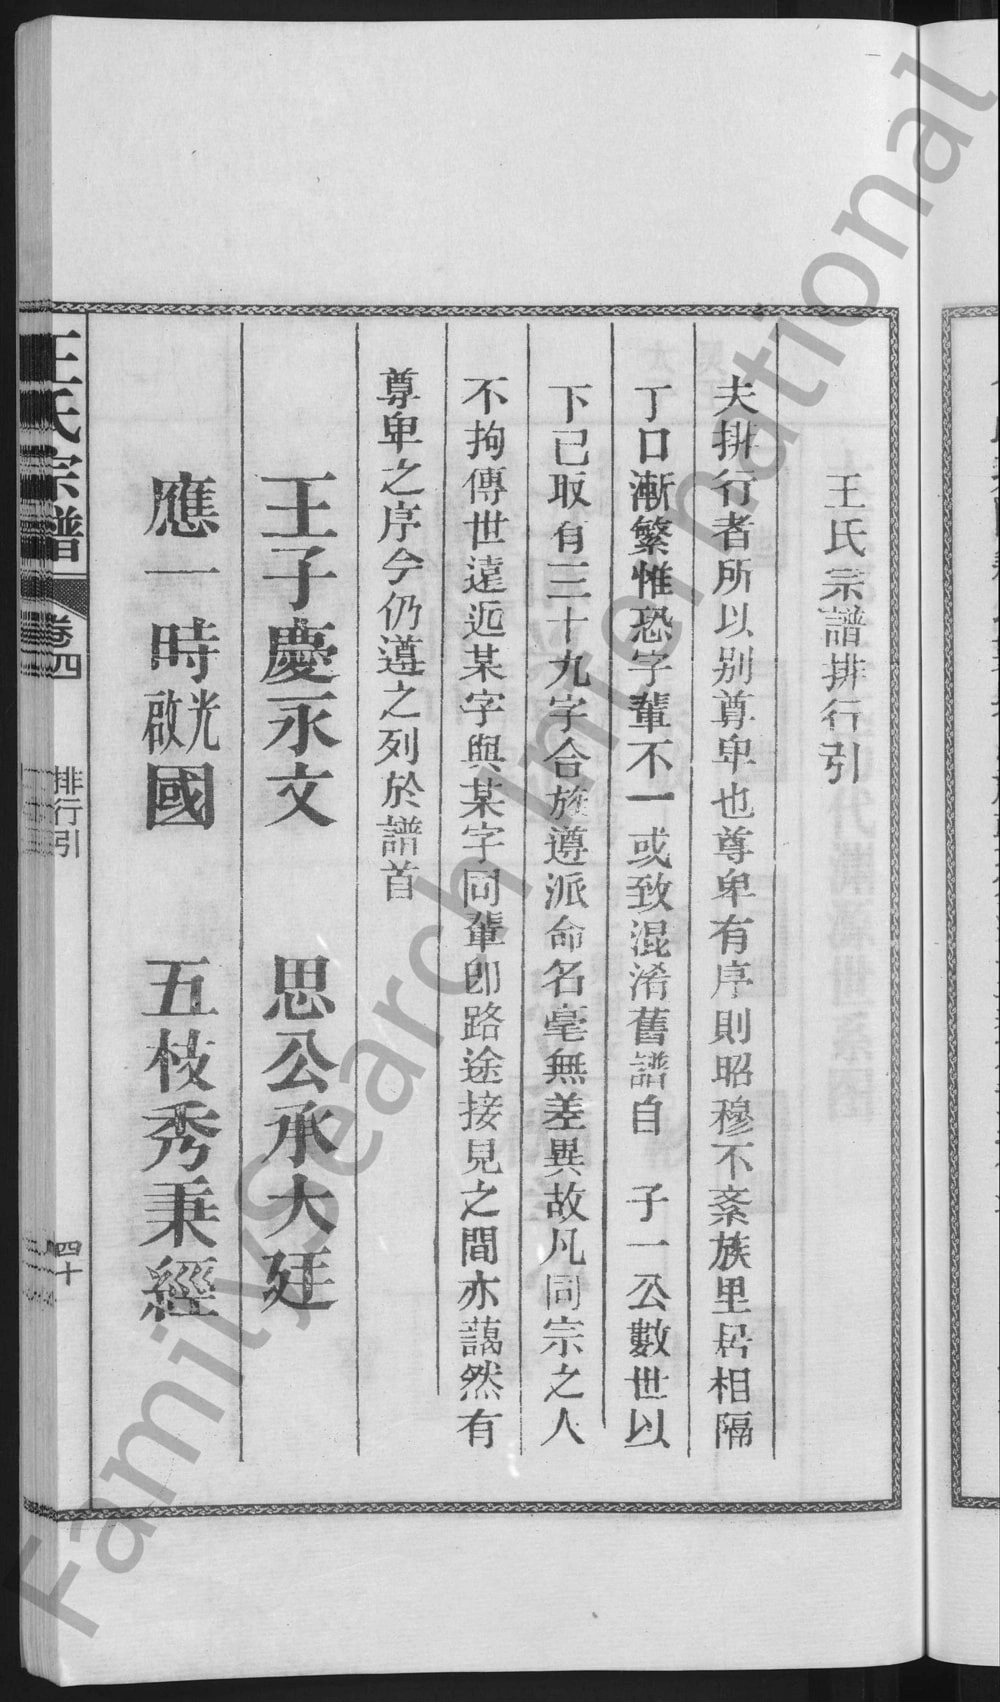 王氏宗譜排行引
夫排行者所以別尊卑也尊卑有序則昭穆不紊族里居相隔
丁口漸繁惟恐字輩不一或致混淆舊譜自　子一公數世以
下已取有三十九字合族遵派命名毫無差異故凡同宗之人
不拘傳世遠近某字與某字同輩卽路途接見之間亦藹然有
尊卑之序今仍遵之列於譜首
王子慶永文　思公承大廷
應一時光啟國　五枝秀秉經
王氏宗譜
卷四
排行引
四十
FamilySearch International